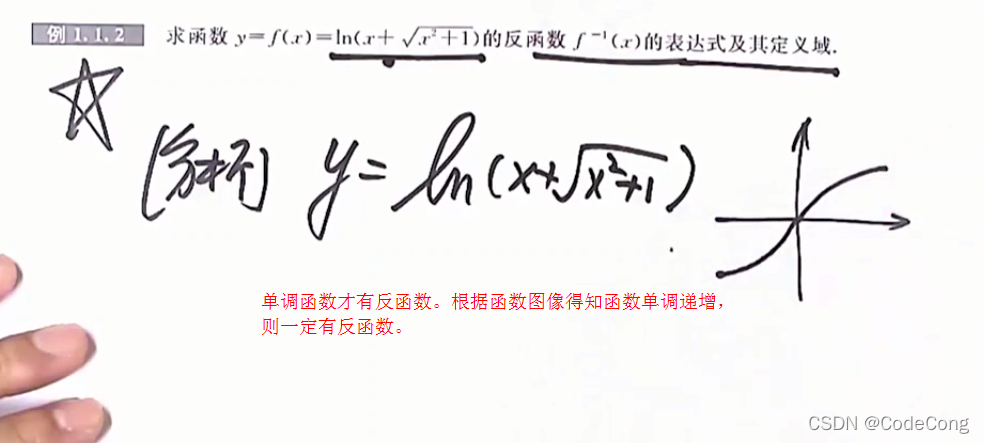 例 1.1.2 求函数 y=f(x)=ln(x+√x²+1)的反函数 f⁻¹(x)的表达式及其定义域.
[分析] y=ln(x+√x²+1)
单调函数才有反函数。根据函数图像得知函数单调递增，
则一定有反函数。
CSDN @CodeCong